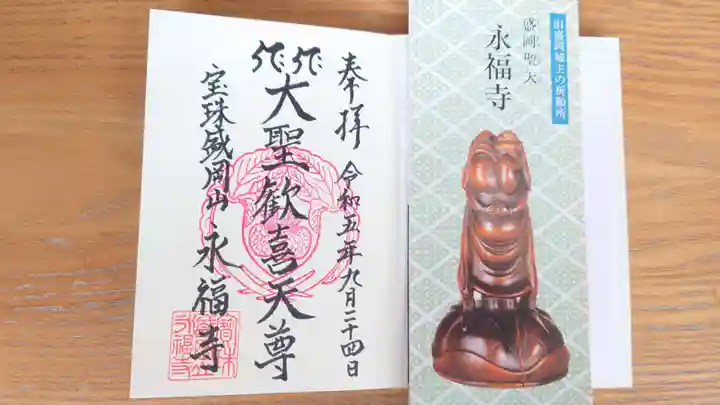 奉拝
令和五年九月二十四日
大聖歓喜天尊
宝珠盛岡山
永福寺
旧盛岡城主の祈願所
盛岡聖天
永福寺